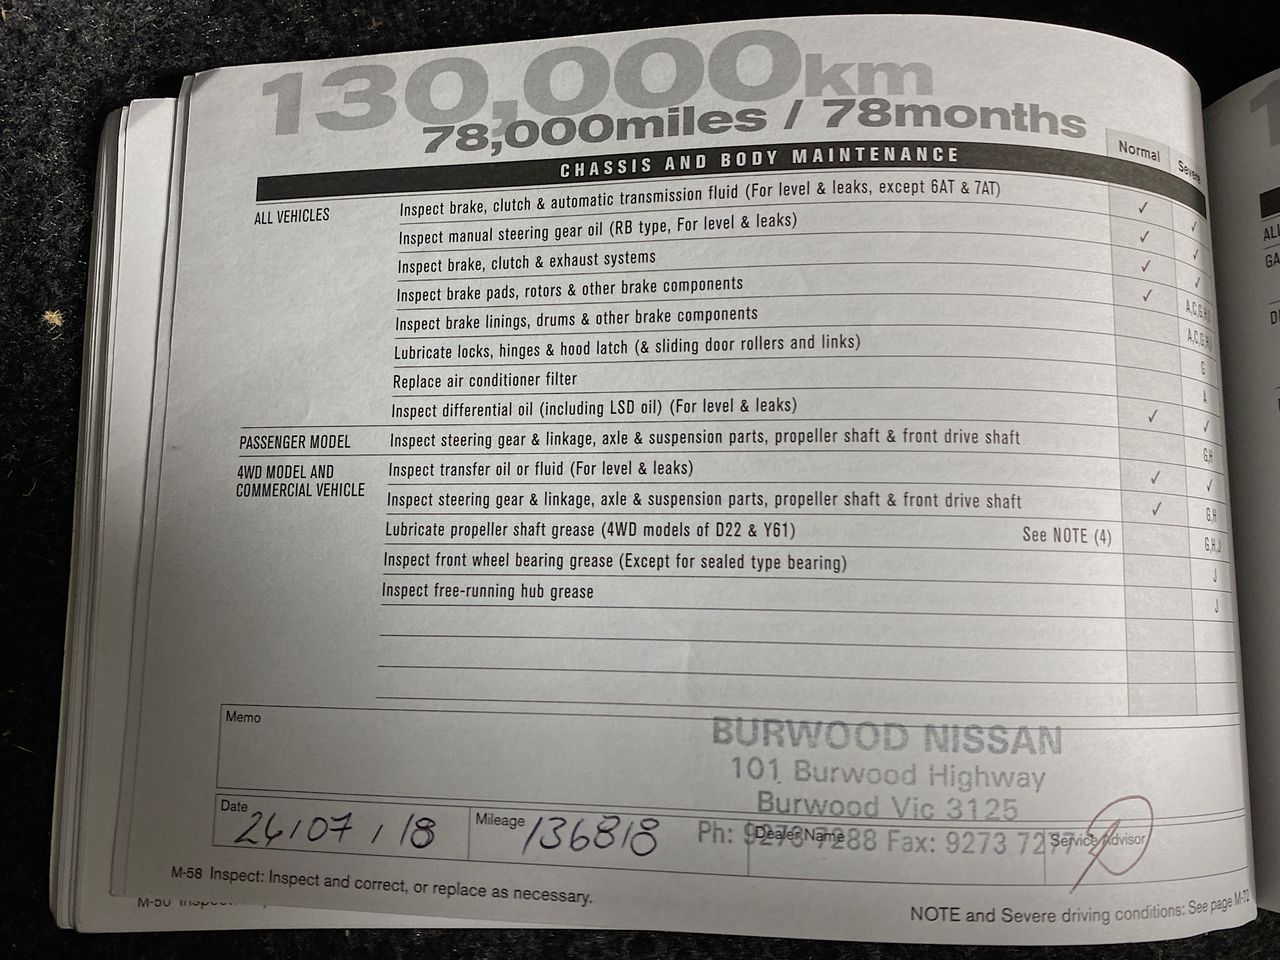 130,000km
78,000miles / 78months
CHASSIS AND BODY MAINTENANCE
Normal
Severe
ALL VEHICLES
Inspect brake, clutch & automatic transmission fluid (For level & leaks, except 6AT & 7AT) ✓ ✓
Inspect manual steering gear oil (RB type, For level & leaks) ✓ ✓
Inspect brake, clutch & exhaust systems ✓ ✓
Inspect brake pads, rotors & other brake components ✓ A,C,G,H
Inspect brake linings, drums & other brake components A,C,G,H
Lubricate locks, hinges & hood latch (& sliding door rollers and links) G
Replace air conditioner filter A
Inspect differential oil (including LSD oil) (For level & leaks) ✓ ✓
PASSENGER MODEL
Inspect steering gear & linkage, axle & suspension parts, propeller shaft & front drive shaft G,H
4WD MODEL AND
COMMERCIAL VEHICLE
Inspect transfer oil or fluid (For level & leaks) ✓ ✓
Inspect steering gear & linkage, axle & suspension parts, propeller shaft & front drive shaft ✓ G,H
Lubricate propeller shaft grease (4WD models of D22 & Y61) See NOTE (4) G,H,J
Inspect front wheel bearing grease (Except for sealed type bearing) J
Inspect free-running hub grease J
Memo
BURWOOD NISSAN
101 Burwood Highway
Burwood Vic 3125
Ph: 9273 7288 Fax: 9273 727
Date 26/07/18
Mileage 136818
Dealer Name
Service Advisor
M-58 Inspect: Inspect and correct, or replace as necessary.
NOTE and Severe driving conditions: See page M-72